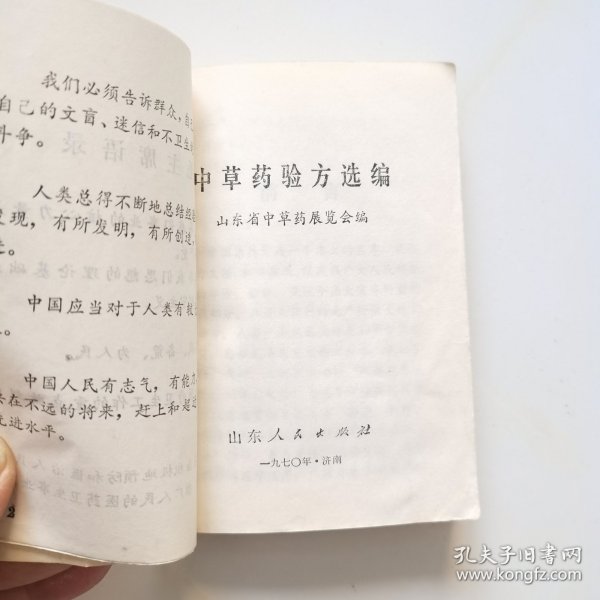 我们必须告诉群众,自己
自己的文盲、迷信和不卫生
斗争。
人类总得不断地总结经
发现,有所发明,有所创造,
进。
中国应当对于人类有较
中国人民有志气,有能力,
在不远的将来,赶上和超过
先进水平。
2
中草药验方选编
山东省中草药展览会编
山东人民出版社
一九七〇年·济南
孔夫子旧书网
www.kongfz.com